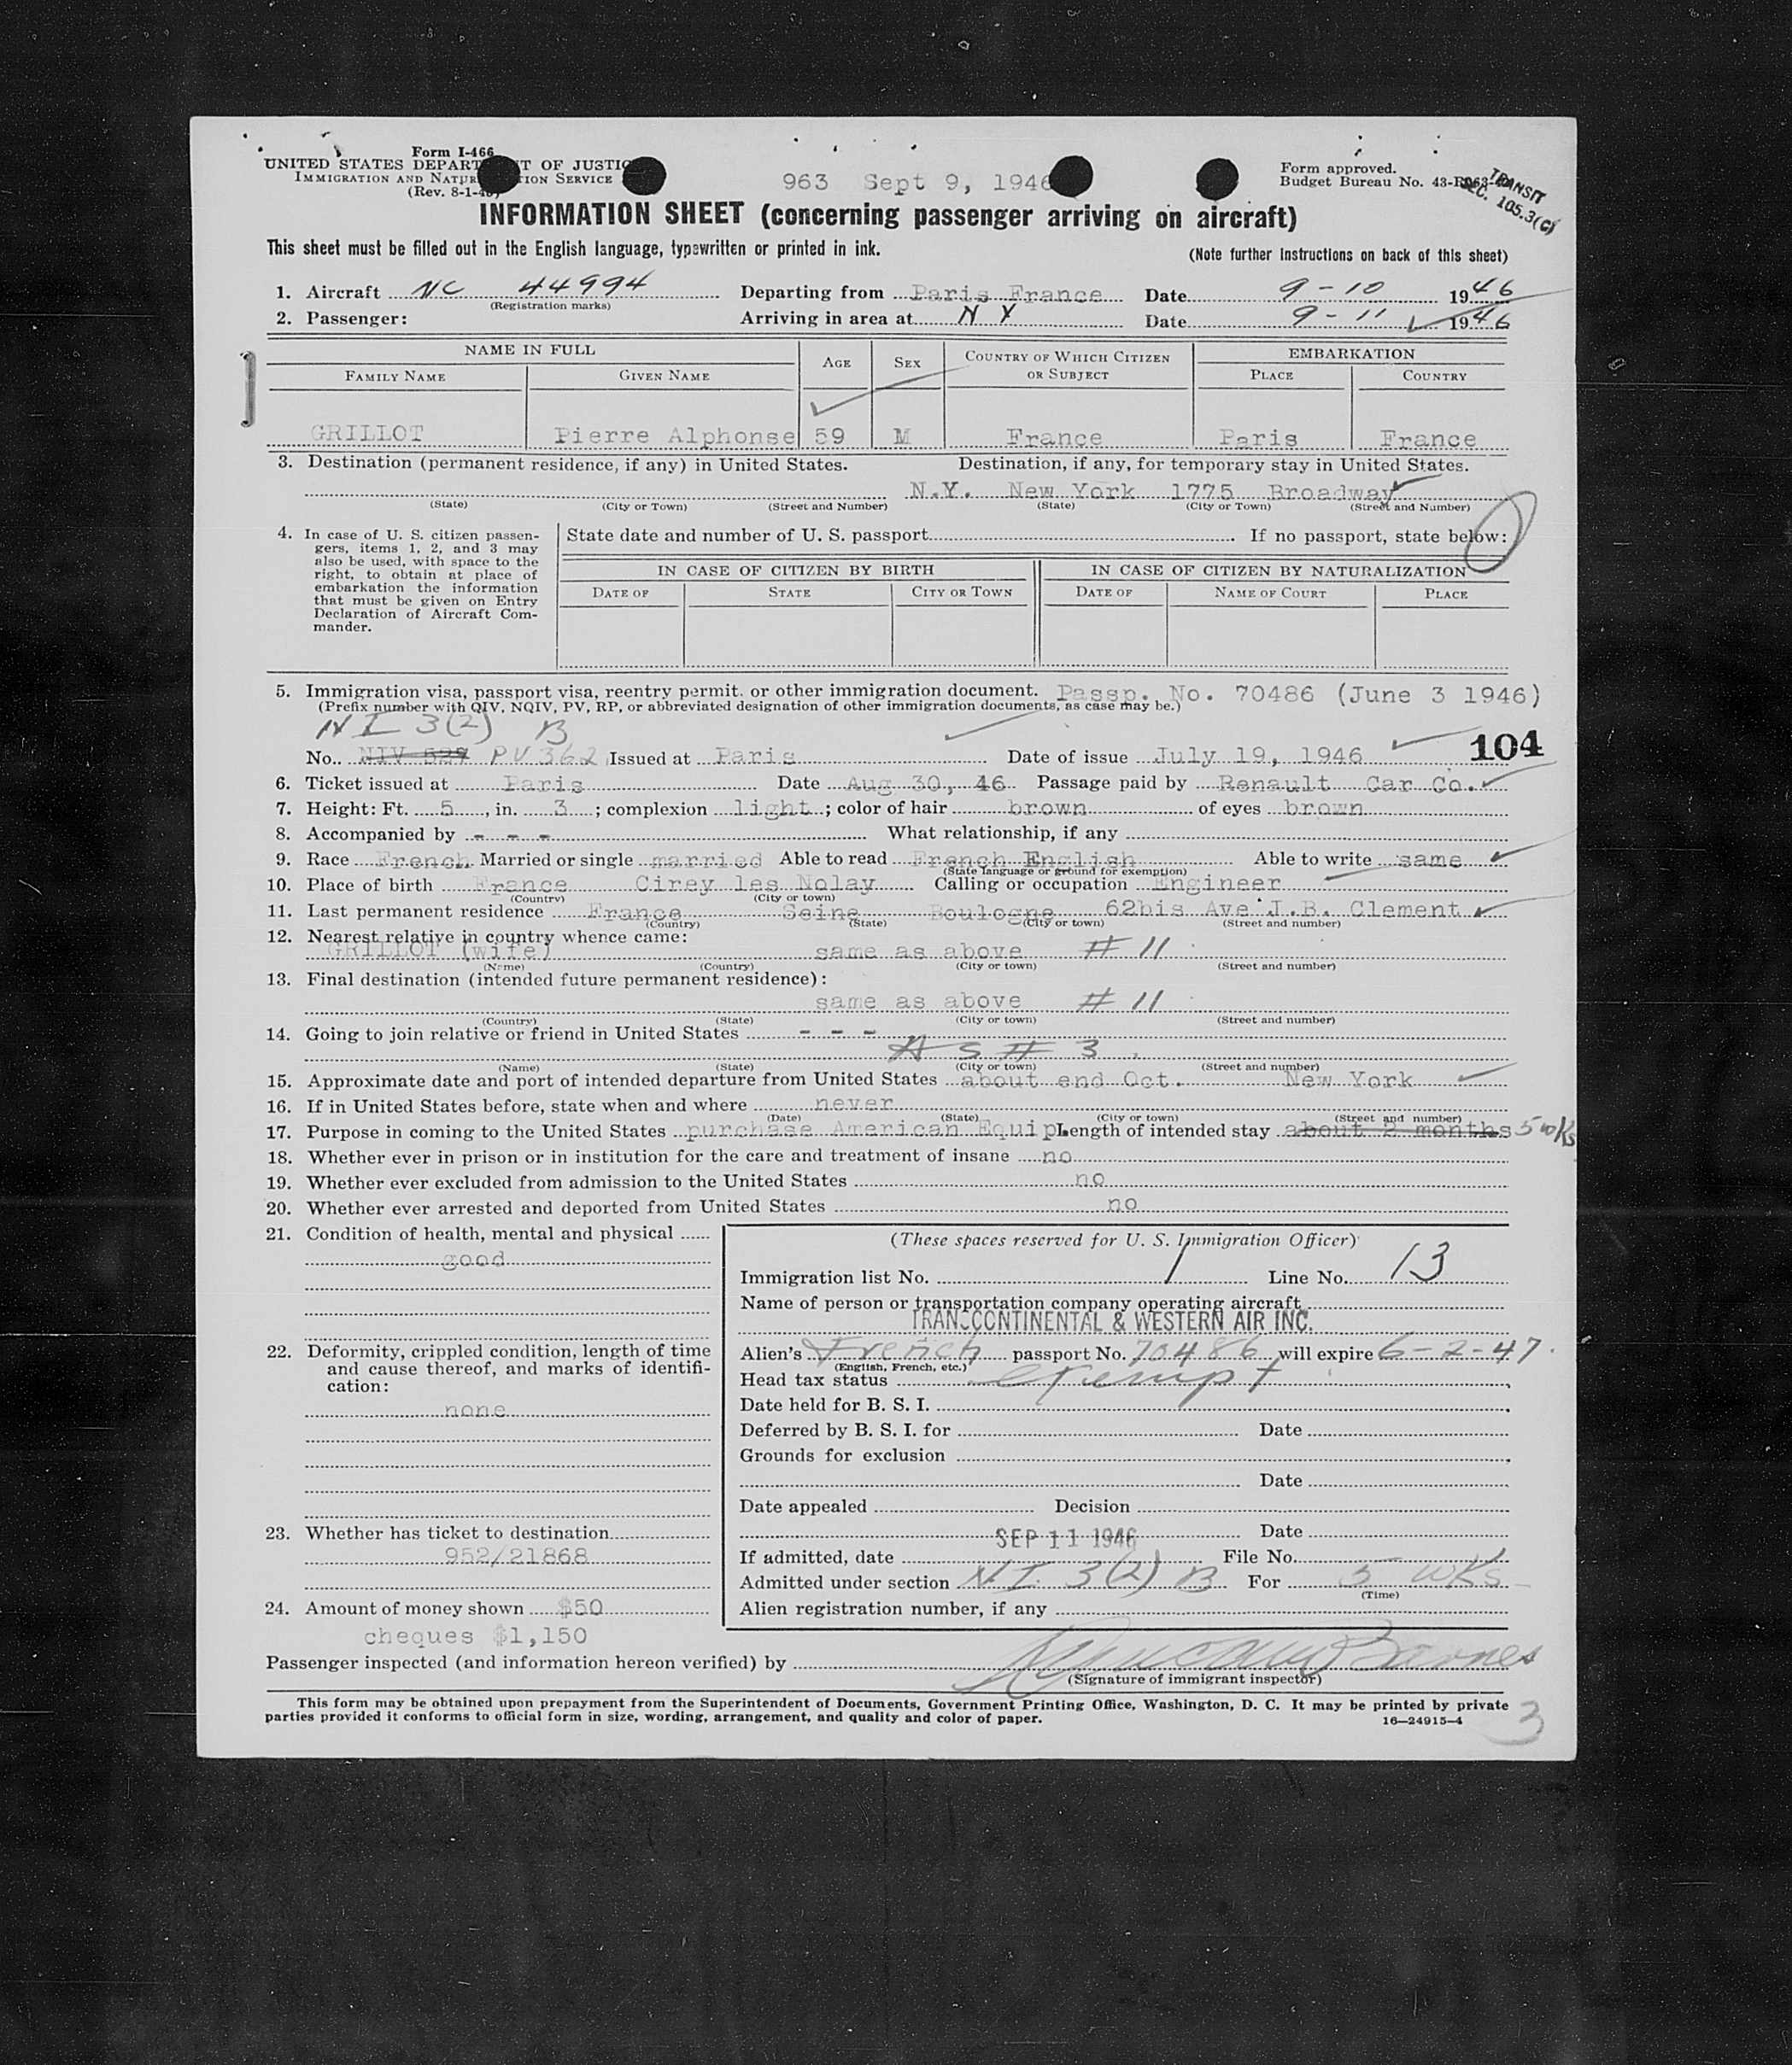 Form I-466
UNITED STATES DEPART T OF JUSTIC
IMMIGRATION AND NATUR TION SERVICE
(Rev. 8-1-4
963 Sept 9, 1946
Form approved.
Budget Bureau No. 43-R063
TRANSIT
SEC. 105.3(C)
INFORMATION SHEET (concerning passenger arriving on aircraft)
This sheet must be filled out in the English language, typewritten or printed in ink.
(Note further instructions on back of this sheet)
1. Aircraft NC 44994 Departing from Paris France Date 9-10 1946
(Registration marks)
2. Passenger: Arriving in area at N Y Date 9-11 1946
NAME IN FULL AGE SEX COUNTRY OF WHICH CITIZEN OR SUBJECT EMBARKATION
FAMILY NAME GIVEN NAME PLACE COUNTRY
GRILLOT Pierre Alphonse 59 M France Paris France
3. Destination (permanent residence, if any) in United States. Destination, if any, for temporary stay in United States.
N.Y. New York 1775 Broadway
(State) (City or Town) (Street and Number) (State) (City or Town) (Street and Number)
4. In case of U. S. citizen passen-
gers, items 1, 2, and 3 may
also be used, with space to the
right, to obtain at place of
embarkation the information
that must be given on Entry
Declaration of Aircraft Com-
mander.
State date and number of U. S. passport If no passport, state below:
IN CASE OF CITIZEN BY BIRTH IN CASE OF CITIZEN BY NATURALIZATION
DATE OF STATE CITY OR TOWN DATE OF NAME OF COURT PLACE
5. Immigration visa, passport visa, reentry permit, or other immigration document. Passp. No. 70486 (June 3 1946)
(Prefix number with QIV, NQIV, PV, RP, or abbreviated designation of other immigration documents, as case may be.)
NI 3(2) B
No. NIV 529 PV 362 Issued at Paris Date of issue July 19, 1946 104
6. Ticket issued at Paris Date Aug 30, 46 Passage paid by Renault Car Co.
7. Height: Ft. 5, in. 3; complexion light; color of hair brown of eyes brown
8. Accompanied by - - - What relationship, if any
9. Race French Married or single married Able to read French English Able to write same
(State language or ground for exemption)
10. Place of birth France Cirey les Nolay Calling or occupation Engineer
(Country) (City or town)
11. Last permanent residence France Seine Boulogne 62bis Ave J.B. Clement
(Country) (State) (City or town) (Street and number)
12. Nearest relative in country whence came:
GRILLOT (wife) same as above # 11
(Name) (Country) (City or town) (Street and number)
13. Final destination (intended future permanent residence):
same as above # 11
(Country) (State) (City or town) (Street and number)
14. Going to join relative or friend in United States - - -
AS # 3
(Name) (State) (City or town) (Street and number)
15. Approximate date and port of intended departure from United States about end Oct. New York
16. If in United States before, state when and where never
(Date) (State) (City or town) (Street and number)
17. Purpose in coming to the United States purchase American Equip. Length of intended stay about 2 months 5 wks
18. Whether ever in prison or in institution for the care and treatment of insane no
19. Whether ever excluded from admission to the United States no
20. Whether ever arrested and deported from United States no
21. Condition of health, mental and physical
good
22. Deformity, crippled condition, length of time
and cause thereof, and marks of identifi-
cation:
none
23. Whether has ticket to destination
952/21868
24. Amount of money shown $50
cheques $1,150
(These spaces reserved for U. S. Immigration Officer)
Immigration list No. 1 Line No. 13
Name of person or transportation company operating aircraft
TRANSCONTINENTAL & WESTERN AIR INC.
Alien's French passport No. 70486 will expire 6-2-47
(English, French, etc.)
Head tax status exempt
Date held for B. S. I.
Deferred by B. S. I. for Date
Grounds for exclusion
Date
Date appealed Decision
Date
If admitted, date SEP 11 1946 File No.
Admitted under section NI 3(2) B For 5 wks
(Time)
Alien registration number, if any
Passenger inspected (and information hereon verified) by Barnes
(Signature of immigrant inspector)
This form may be obtained upon prepayment from the Superintendent of Documents, Government Printing Office, Washington, D. C. It may be printed by private
parties provided it conforms to official form in size, wording, arrangement, and quality and color of paper.
16—24915-4
3